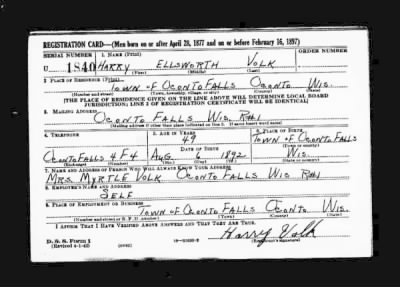 REGISTRATION CARD—(Men born on or after April 28, 1877 and on or before February 16, 1897)
SERIAL NUMBER 1. NAME (Print) ORDER NUMBER
U 1840 HARRY ELLSWORTH VOLK
(First) (Middle) (Last)
2. PLACE OF RESIDENCE (Print)
TOWN OF OCONTO FALLS OCONTO WIS.
(Number and street) (Town, township, village, or city) (County) (State)
[THE PLACE OF RESIDENCE GIVEN ON THE LINE ABOVE WILL DETERMINE LOCAL BOARD
JURISDICTION; LINE 2 OF REGISTRATION CERTIFICATE WILL BE IDENTICAL]
3. MAILING ADDRESS
OCONTO FALLS WIS. R#1
[Mailing address if other than place indicated on line 2. If same insert word same]
4. TELEPHONE 5. AGE IN YEARS 6. PLACE OF BIRTH
49 TOWN OF OCONTO FALLS
DATE OF BIRTH (Town or county)
OCONTO FALLS 4F4 AUG. 6 1892 WIS.
(Mo.) (Day) (Yr.) (State or country)
7. NAME AND ADDRESS OF PERSON WHO WILL ALWAYS KNOW YOUR ADDRESS
MRS MYRTLE VOLK OCONTO FALLS WIS R#1
8. EMPLOYER'S NAME AND ADDRESS
SELF
9. PLACE OF EMPLOYMENT OR BUSINESS
TOWN OF OCONTO FALLS OCONTO WIS.
(Number and street or R. F. D. number) (Town) (County) (State)
I AFFIRM THAT I HAVE VERIFIED ABOVE ANSWERS AND THAT THEY ARE TRUE.
Harry Volk
D. S. S. Form 1
(Revised 4-1-42) (over) (Registrant's signature)